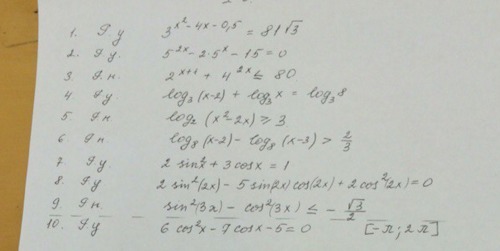 1. Р.у 3^{x²-4x-0,5} = 81√3
2. Р.у. 5^{2x} - 2·5^x - 15 = 0
3. Р.н. 2^{x+1} + 4^{2x} ≤ 80
4. Р.у. log₃(x-2) + log₃x = log₃8
5. Р.н log₂(x²-2x) ≥ 3
6. Р.н. log₈(x-2) - log₈(x-3) > 2/3
7. Р.у 2 sin²x + 3 cosx = 1
8. Р.у 2 sin²(2x) - 5 sin(2x) cos(2x) + 2 cos²(2x) = 0
9. Р.н. sin²(3x) - cos²(3x) ≤ -√3/2
10. Р.у 6 cos²x - 7 cosx - 5 = 0 [-π; 2π]